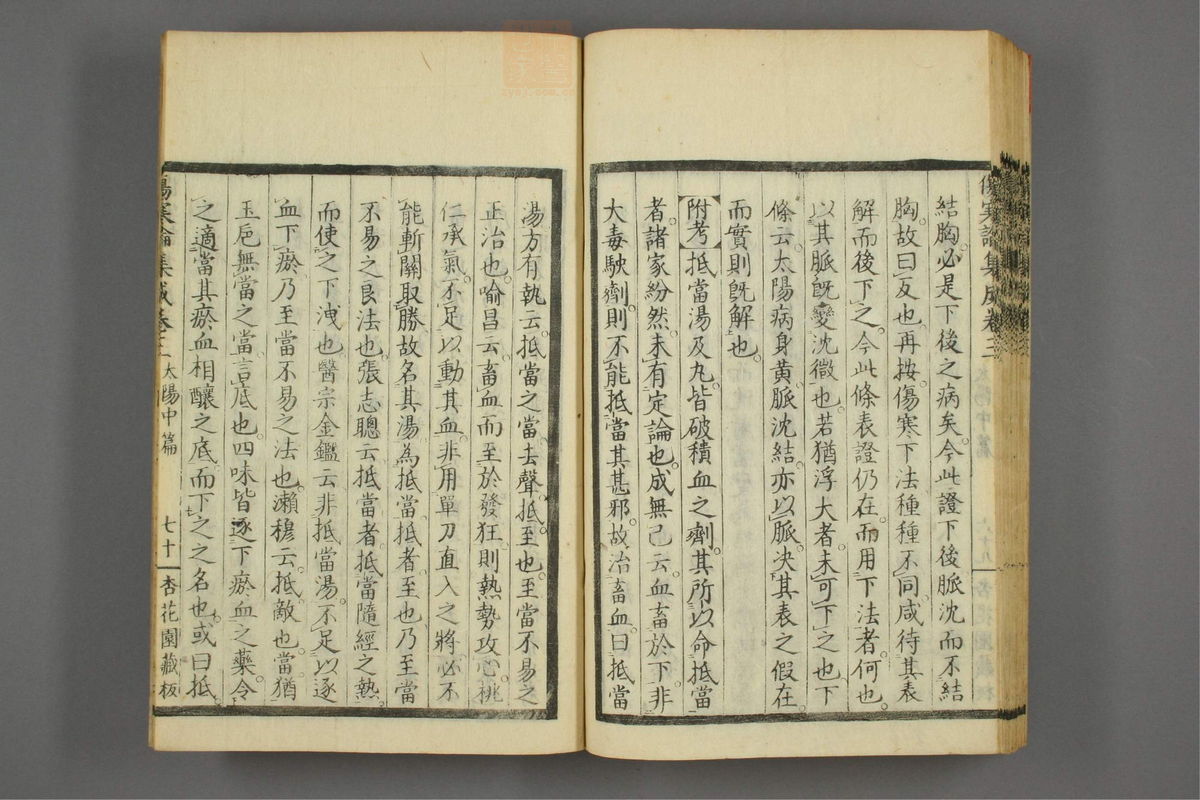 結胸必是下後之病矣今此證下後脈沈而不結
胸故曰反也再按傷寒下法種種不同咸待其表
解而後下之今此條表證仍在而用下法者何也
以其脈既變沈微也若猶浮大者未可下之也下
條云太陽病身黄脈沈結亦以脈决其表之假在
而實則既解也
附考抵當湯及丸皆破積血之劑其所以命抵當
者諸家紛然未有定論也成無己云血畜於下非
大毒駃劑則不能抵當其甚邪故治畜血曰抵當
湯方有執云抵當之當去聲抵至也至當不易之
正治也喻昌云畜血而至於發狂則熱勢攻心桃
仁承氣不足以動其血非用單刀直入之將必不
能斬關取勝故名其湯為抵當抵者至也乃至當
不易之良法也張志聰云抵當者抵當隨經之熱
而使之下洩也醫宗金鑑云非抵當湯不足以逐
血下瘀乃至當不易之法也瀨穆云抵敵也當猶
玉巵無當之當言底也四味皆逐下瘀血之藥令
之適當其瘀血相釀之底而下之之名也或曰抵
傷寒論集成卷三 太陽中篇 七十 杏花園藏板
傷寒論集成卷三